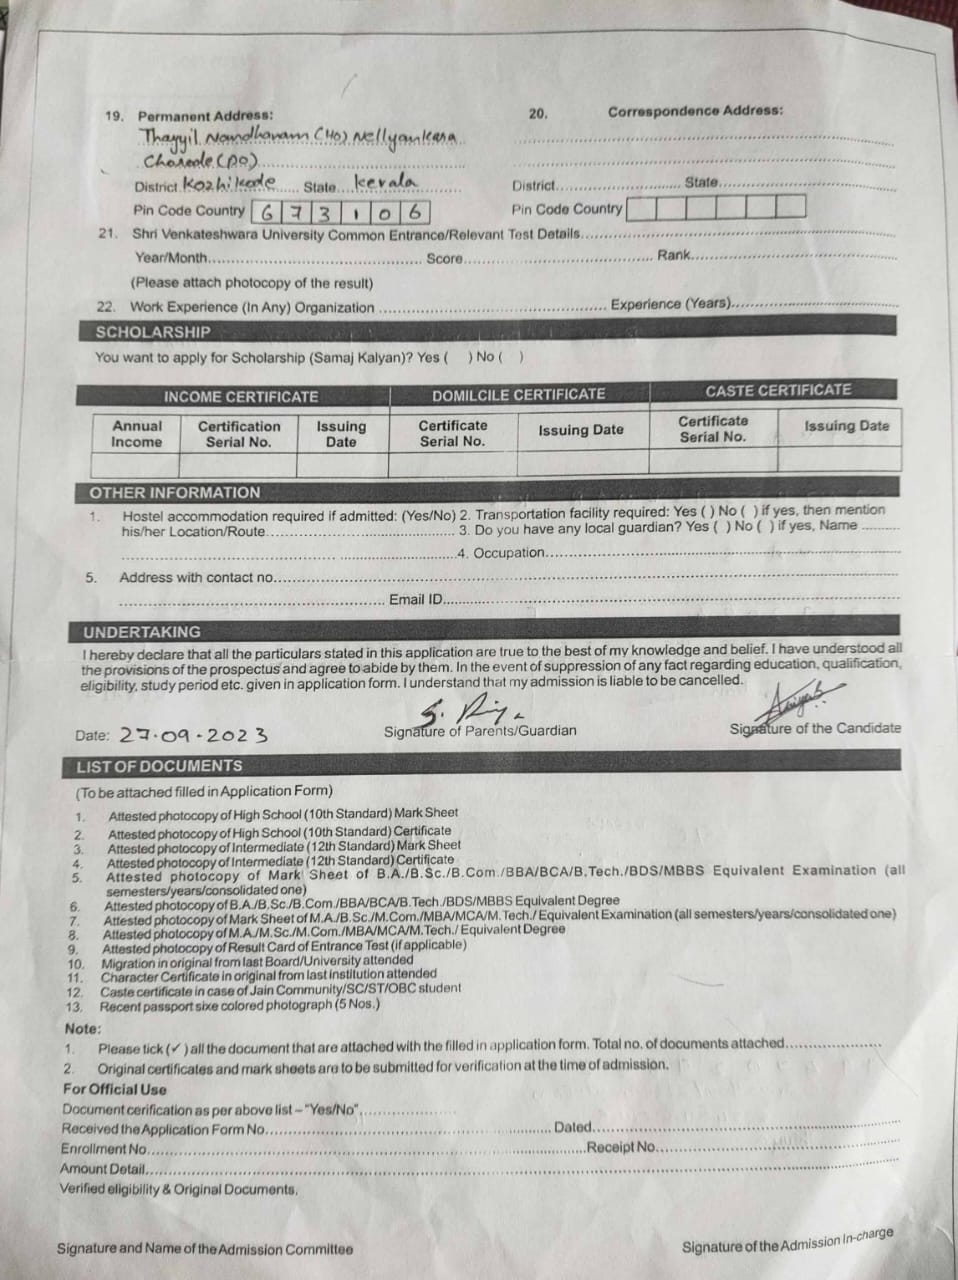 19. Permanent Address:
Thayyil Nandhanam (HO) Nellyankara
(PO)
District Kozhikode State kerala
Pin Code Country 6 7 3 1 0 6
20. Correspondence Address:
District State
Pin Code Country
21. Shri Venkateshwara University Common Entrance/Relevant Test Details
Year/Month Score Rank
(Please attach photocopy of the result)
22. Work Experience (In Any) Organization Experience (Years)
SCHOLARSHIP
You want to apply for Scholarship (Samaj Kalyan)? Yes ( ) No ( )
INCOME CERTIFICATE DOMILCILE CERTIFICATE CASTE CERTIFICATE
Annual Income Certification Serial No. Issuing Date Certificate Serial No. Issuing Date Certificate Serial No. Issuing Date
OTHER INFORMATION
1. Hostel accommodation required if admitted: (Yes/No) 2. Transportation facility required: Yes ( ) No ( ) if yes, then mention
his/her Location/Route 3. Do you have any local guardian? Yes ( ) No ( ) if yes, Name
4. Occupation
5. Address with contact no.
Email ID
UNDERTAKING
I hereby declare that all the particulars stated in this application are true to the best of my knowledge and belief. I have understood all
the provisions of the prospectus and agree to abide by them. In the event of suppression of any fact regarding education, qualification,
eligibility, study period etc. given in application form. I understand that my admission is liable to be cancelled.
Date: 27.09.2023 Signature of Parents/Guardian Signature of the Candidate
LIST OF DOCUMENTS
(To be attached filled in Application Form)
1. Attested photocopy of High School (10th Standard) Mark Sheet
2. Attested photocopy of High School (10th Standard) Certificate
3. Attested photocopy of Intermediate (12th Standard) Mark Sheet
4. Attested photocopy of Intermediate (12th Standard) Certificate
5. Attested photocopy of Mark Sheet of B.A./B.Sc./B.Com./BBA/BCA/B.Tech./BDS/MBBS Equivalent Examination (all
semesters/years/consolidated one)
6. Attested photocopy of B.A./B.Sc./B.Com./BBA/BCA/B.Tech./BDS/MBBS Equivalent Degree
7. Attested photocopy of Mark Sheet of M.A./B.Sc./M.Com./MBA/MCA/M.Tech./ Equivalent Examination (all semesters/years/consolidated one)
8. Attested photocopy of M.A./M.Sc./M.Com./MBA/MCA/M.Tech./ Equivalent Degree
9. Attested photocopy of Result Card of Entrance Test (if applicable)
10. Migration in original from last Board/University attended
11. Character Certificate in original from last institution attended
12. Caste certificate in case of Jain Community/SC/ST/OBC student
13. Recent passport sixe colored photograph (5 Nos.)
Note:
1. Please tick (✓) all the document that are attached with the filled in application form. Total no. of documents attached
2. Original certificates and mark sheets are to be submitted for verification at the time of admission.
For Official Use
Document cerification as per above list – "Yes/No"
Received the Application Form No. Dated
Enrollment No. Receipt No.
Amount Detail
Verified eligibility & Original Documents.
Signature and Name of the Admission Committee Signature of the Admission In-charge